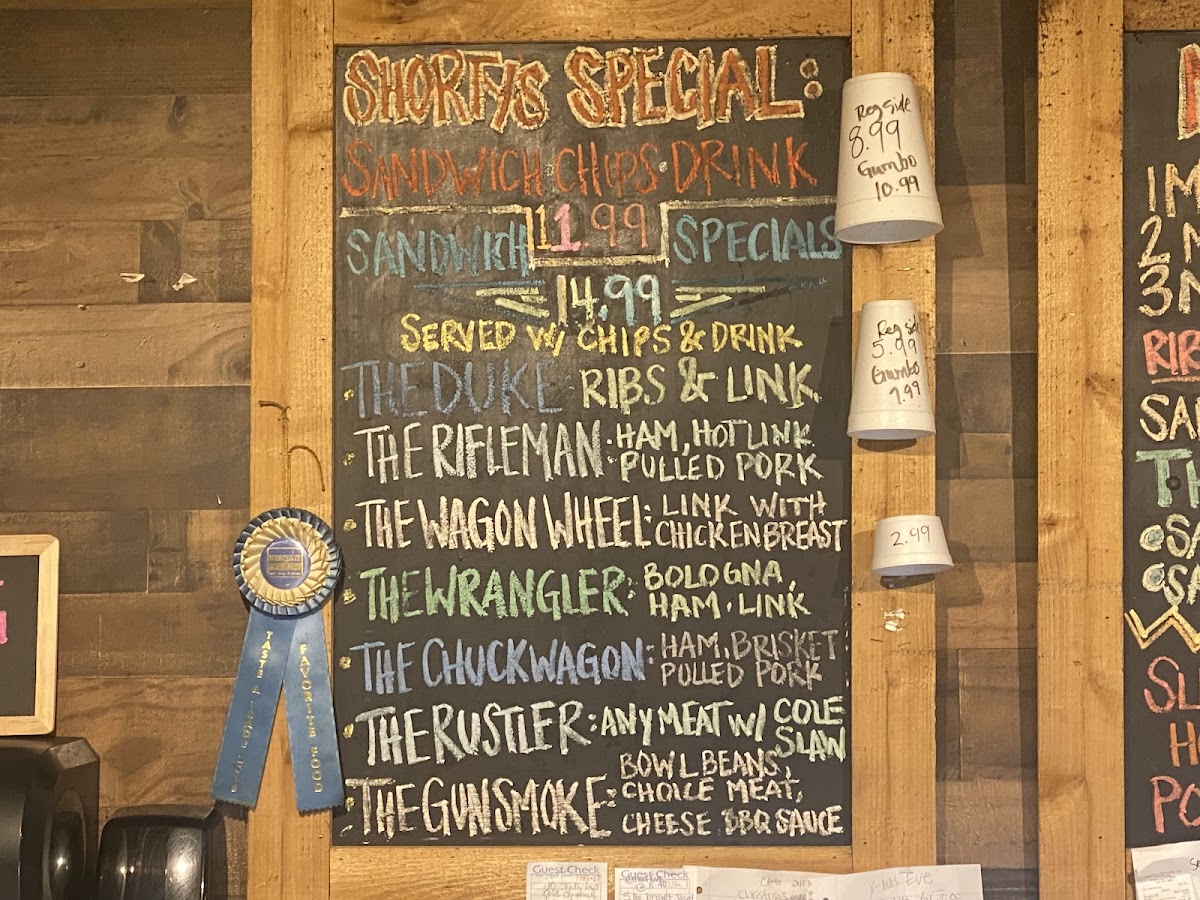 SHORTY'S SPECIAL:
SANDWICH·CHIPS·DRINK
11.99
SANDWICH SPECIALS
14.99
SERVED W/ CHIPS & DRINK
THE DUKE: RIBS & LINK
THE RIFLEMAN: HAM, HOT LINK
PULLED PORK
THE WAGON WHEEL: LINK WITH
CHICKEN BREAST
THE WRANGLER: BOLOGNA,
HAM · LINK
THE CHUCKWAGON: HAM, BRISKET
PULLED PORK
THE RUSTLER: ANY MEAT W/ COLE
SLAW
THE GUNSMOKE: BOWL BEANS,
CHOICE MEAT,
CHEESE BBQ SAUCE
Reg side
8.99
Gumbo
10.99
Reg side
5.99
Gumbo
7.99
2.99
FAVORITE FOOD
Guest Check
Guest Check
1
2
3
RIB
SA